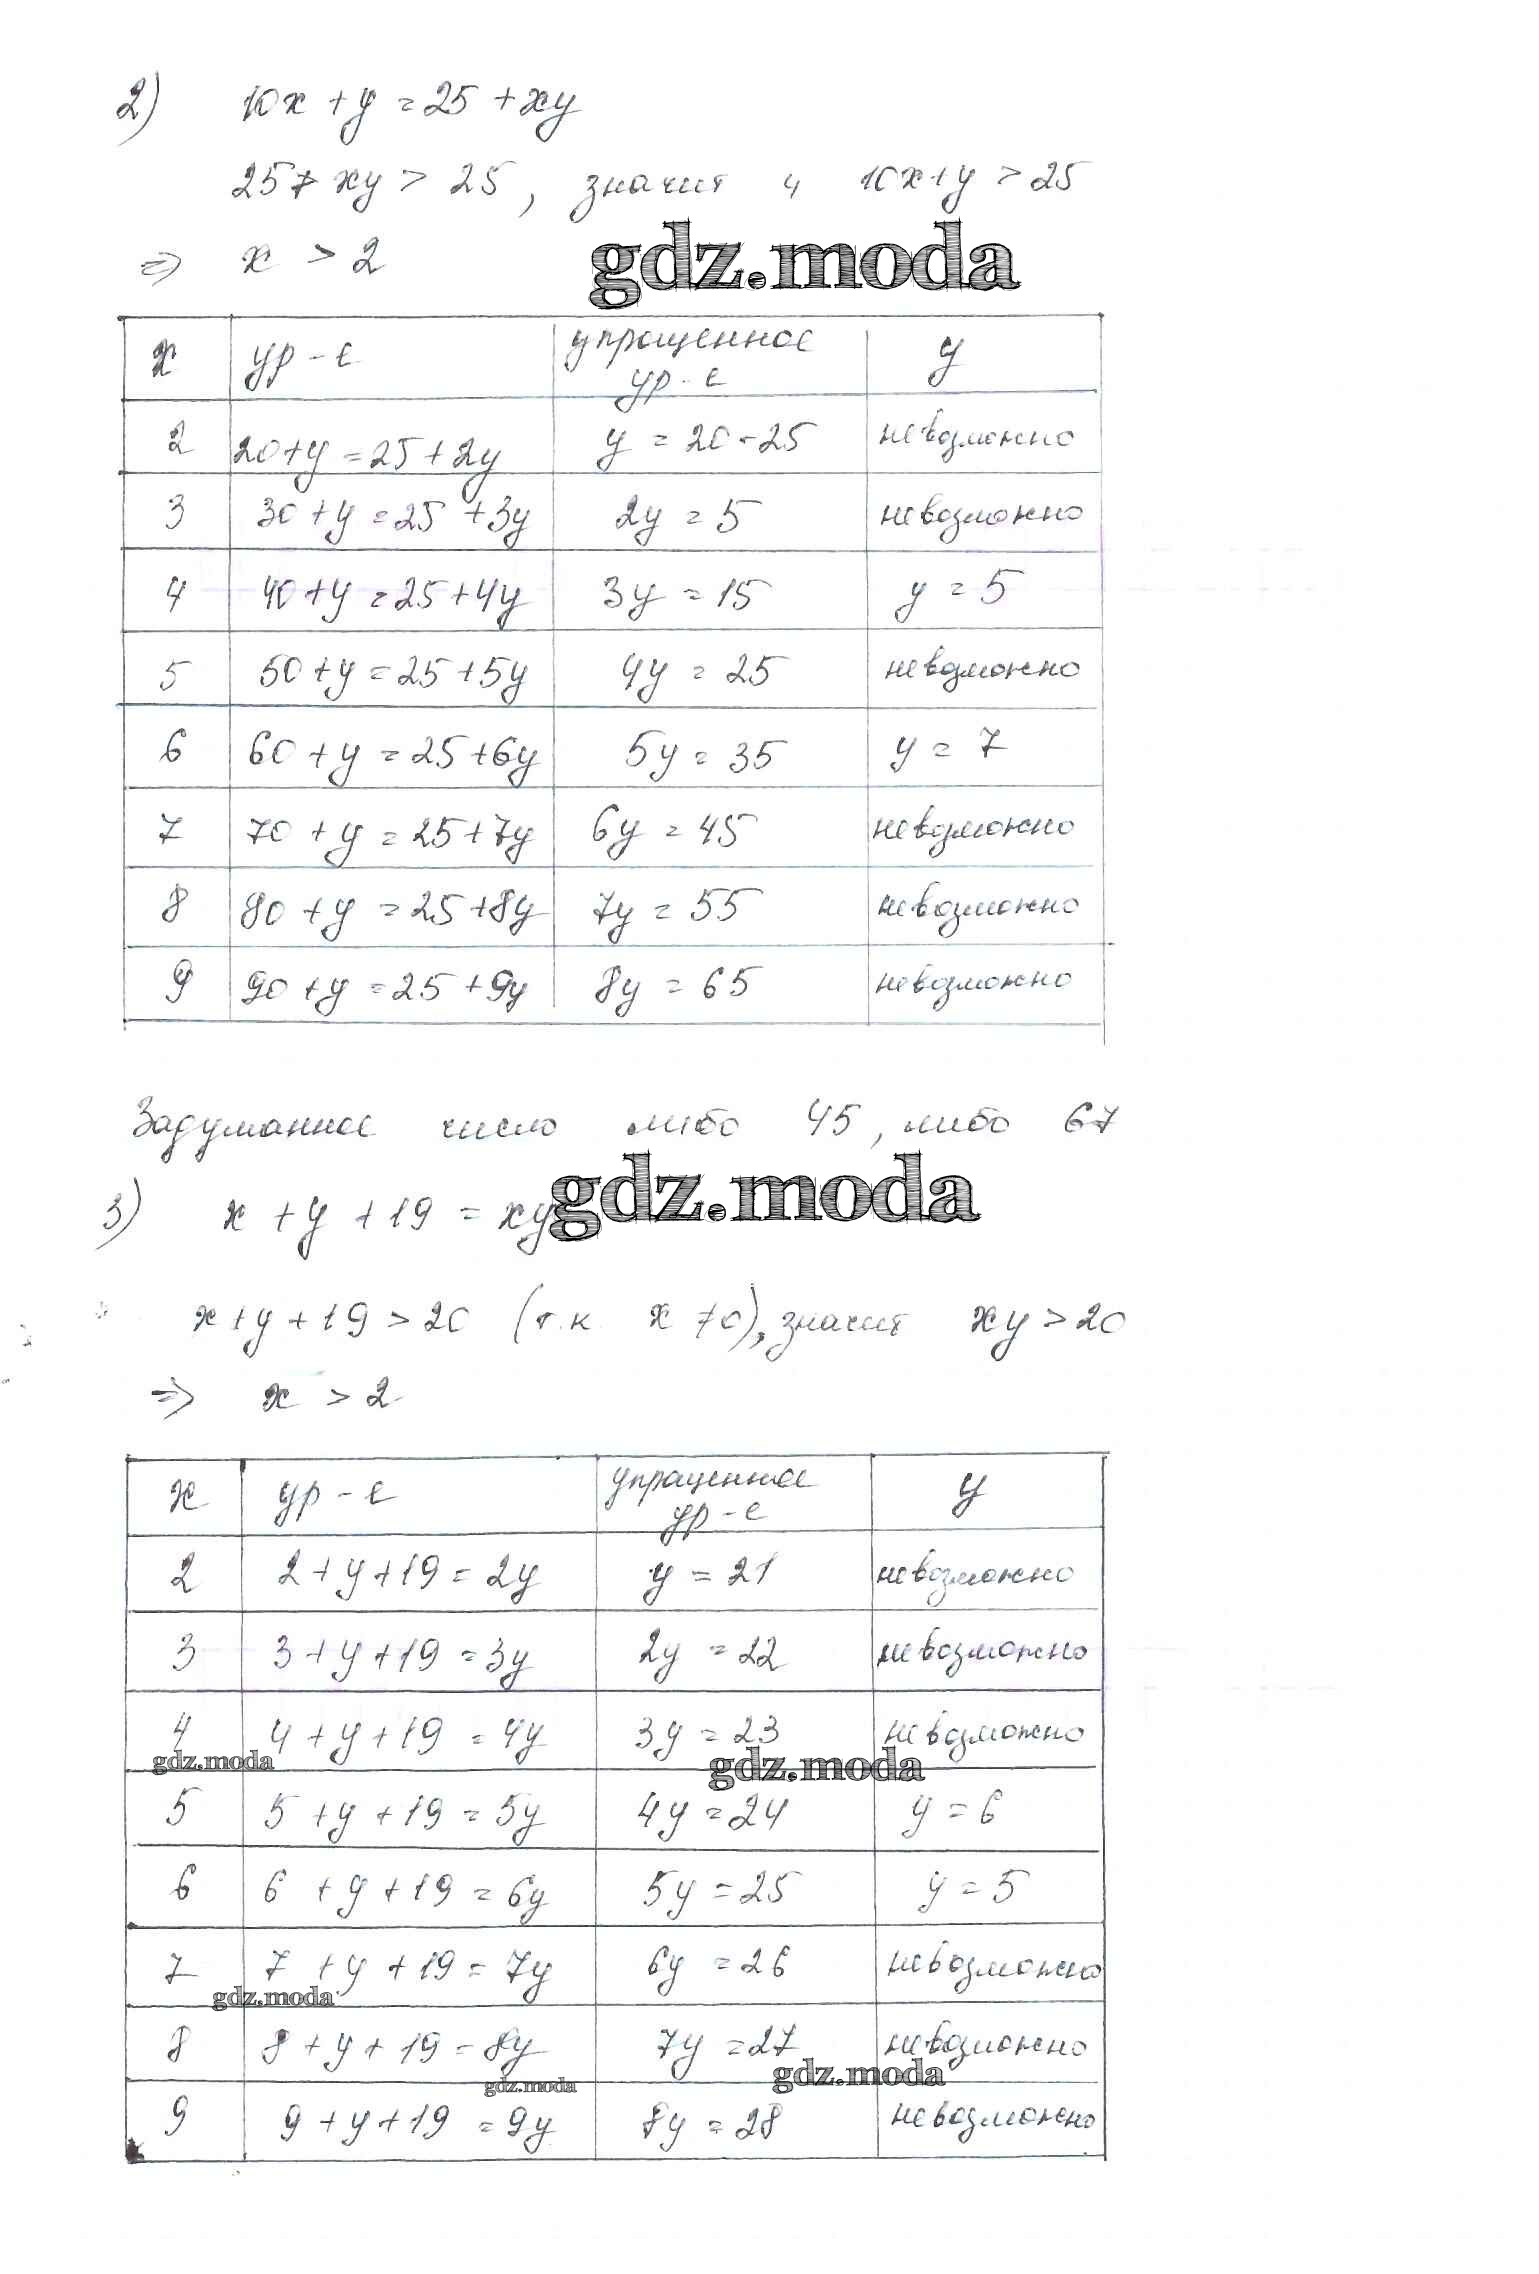 2) 10x + y = 25 + xy
25 + xy > 25, значит и 10x+y > 25
gdz.moda
=> x > 2
x ур-е упрощенное ур-е y
2 20+y=25+2y y = 20-25 невозможно
3 30+y=25+3y 2y = 5 невозможно
4 40+y=25+4y 3y = 15 y = 5
5 50+y=25+5y 4y = 25 невозможно
6 60+y=25+6y 5y = 35 y = 7
7 70+y=25+7y 6y = 45 невозможно
8 80+y=25+8y 7y = 55 невозможно
9 90+y=25+9y 8y = 65 невозможно
Задуманное число либо 45, либо 67
3) x + y + 19 = xy
gdz.moda
x+y+19>20 (т.к x≠0), значит xy>20
=> x > 2
x ур-е упращенное ур-е y
2 2+y+19=2y y = 21 невозможно
3 3+y+19=3y 2y = 22 невозможно
4 4+y+19=4y 3y = 23 невозможно
gdz.moda gdz.moda
5 5+y+19=5y 4y=24 y = 6
6 6+y+19=6y 5y=25 y = 5
7 7+y+19=7y 6y = 26 невозможно
gdz.moda
8 8+y+19=8y 7y = 27 невозможно
gdz.moda gdz.moda
9 9+y+19=9y 8y = 28 невозможно